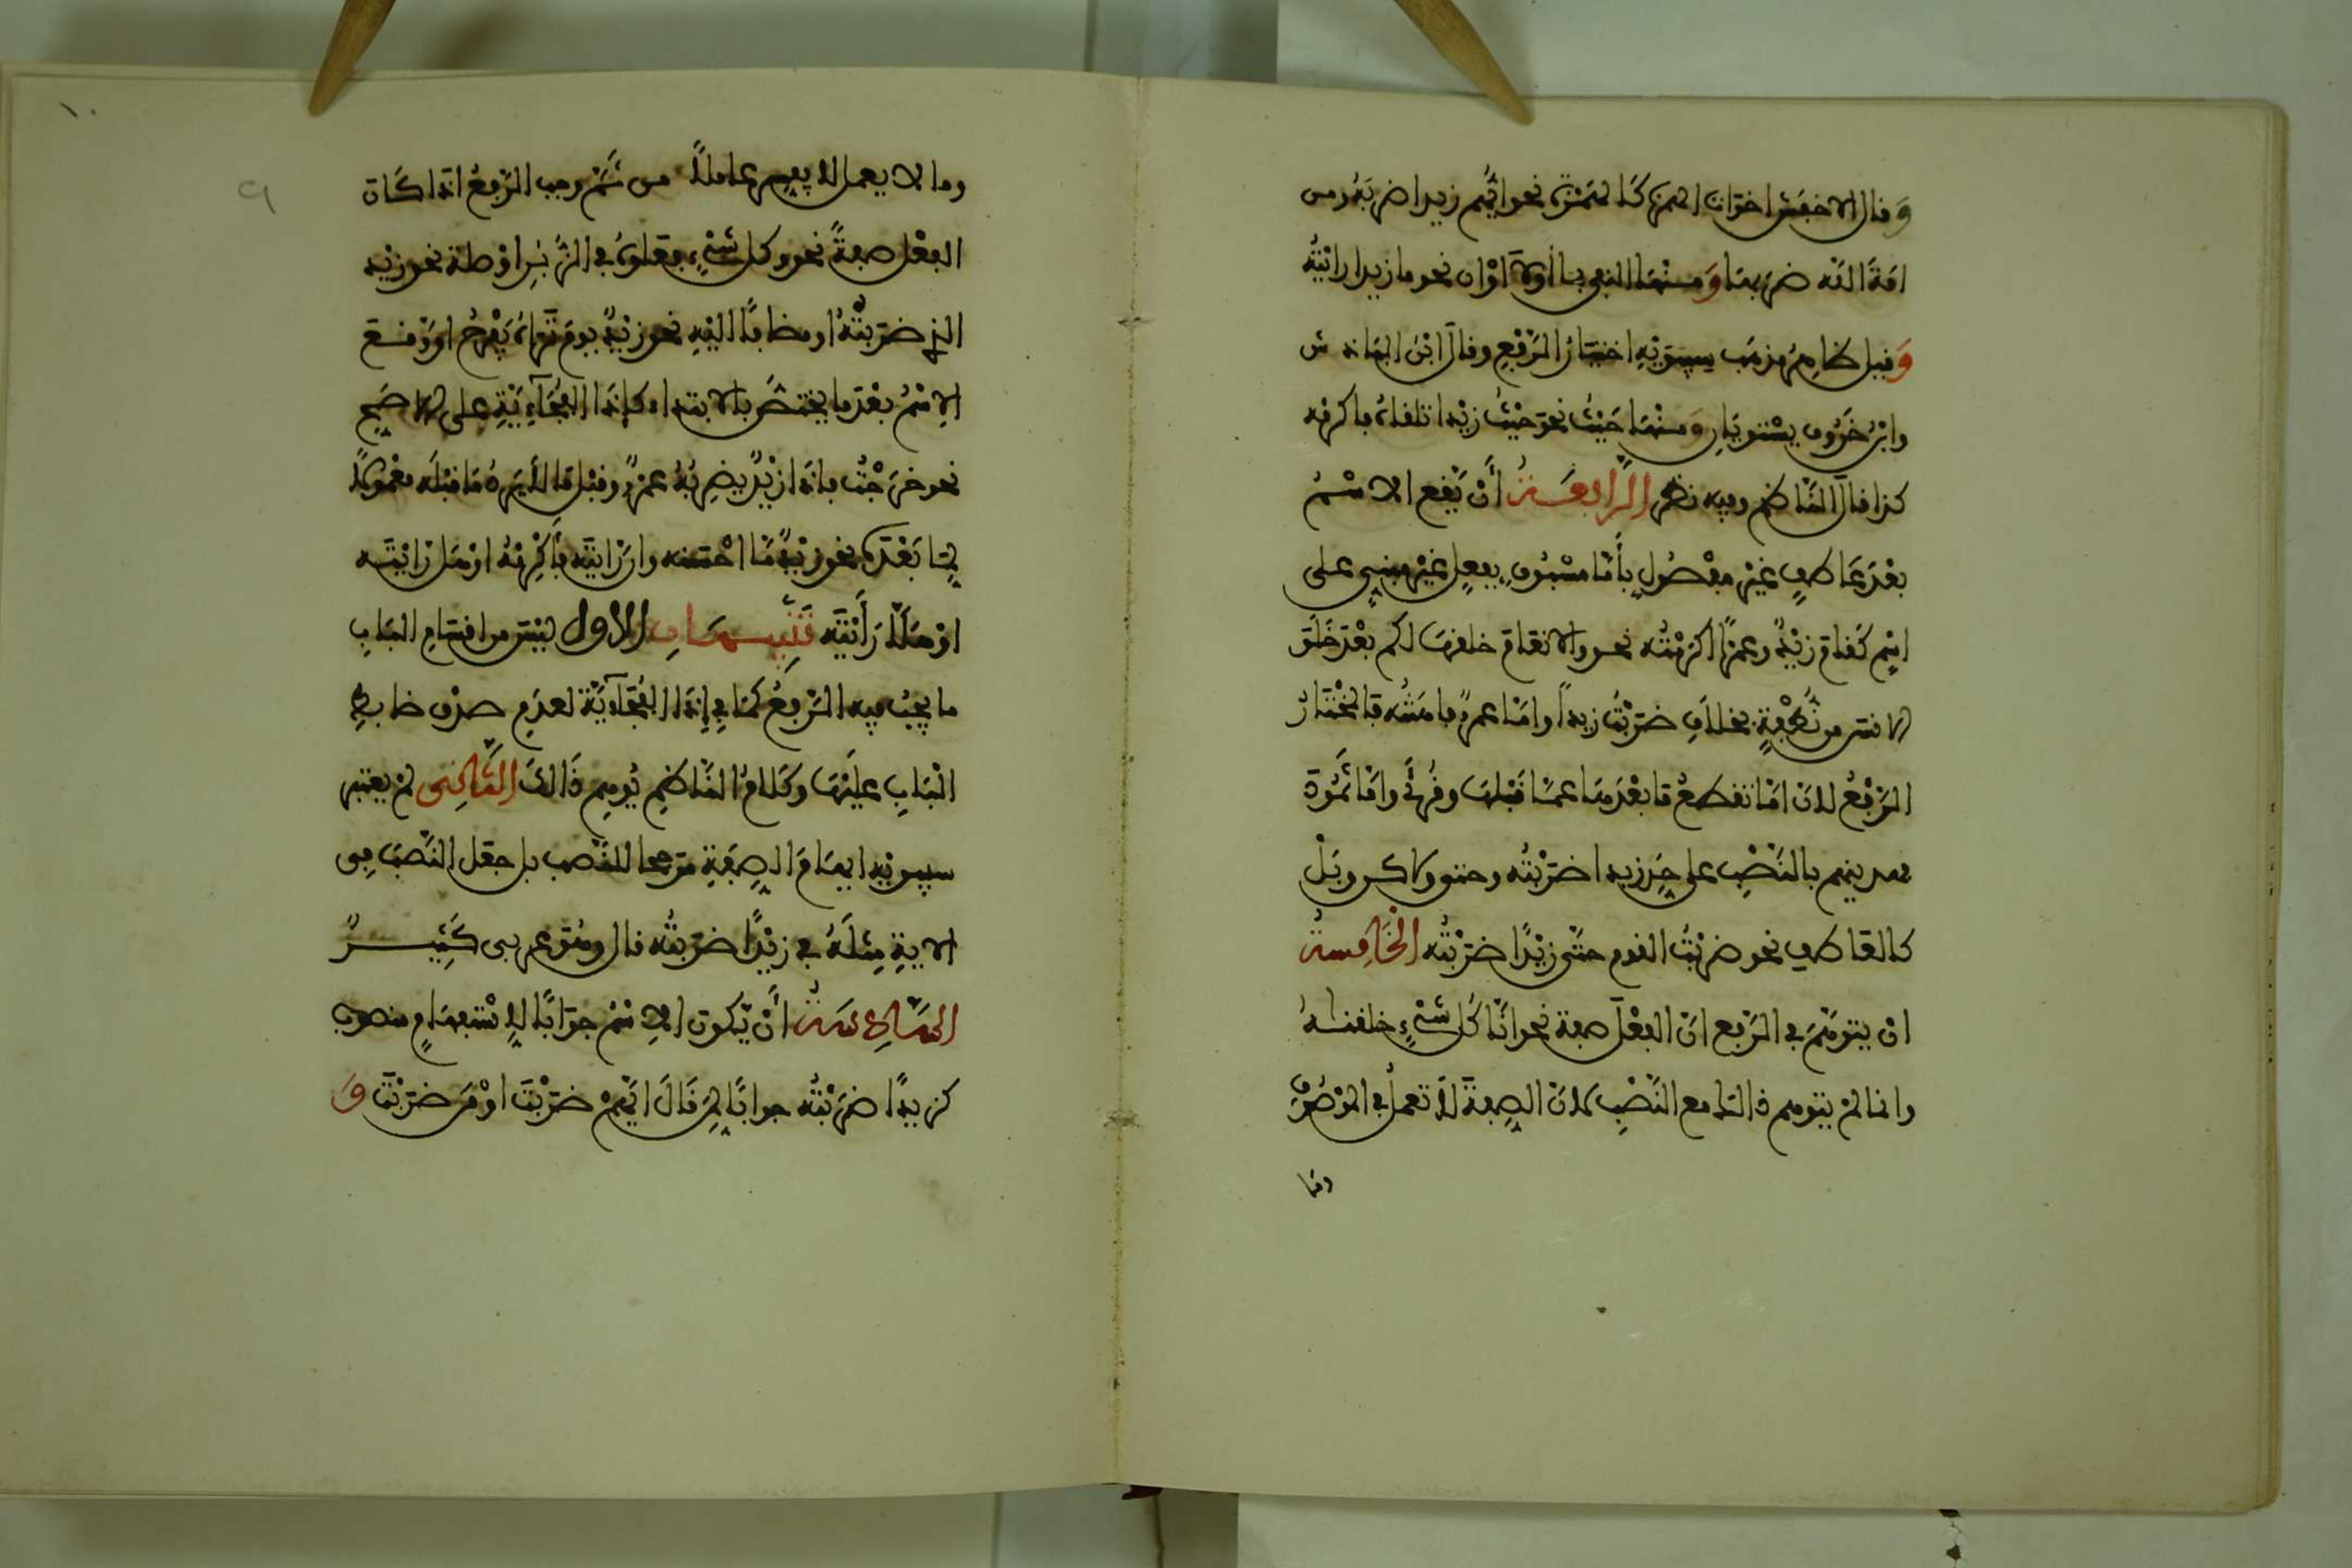 وقال الاخفش اخوات الهمزة كالهمزة نحو ايهم زيدا ضربه ومن
امة الله ضربها ومنها النفي بما أولا اوان نحو ما زيدا رايته
وقيل ظاهر مذهب سيبويه اختيار الرفع وقال ابن الباذش
وابن خروف يستويان ومنها حيث نحو حيث زيدا تلقاه فاكرمه
كذا قال الناظم وفيه نظر الرابعة أن يقع الاسم
بعد عاطف غير مفصول بأما مسبوق بفعل غير مبني على
اسم كقام زيد وعمرا اكرمته نحو والانعام خلقها لكم بعد خلق
الانسن من نطفة بخلاف ضربت زيدا واما عمرو فاهنته فالمختار
الرفع لان اما تقطع ما بعدها عما قبلها وقرئ واما ثمود
فهديناهم بالنصب على حد زيدا ضربته وحتى ولاكن وبل
كالعاطف نحو ضربت القوم حتى زيدا ضربته الخامسة
ان يتوهم في الرفع ان الفعل صفة نحو انا كل شيء خلقنه
وانما لم يتوهم ذالك مع النصب لان الصفة لا تعمل في الموصوف
وما
١٠
٩
وما لا يعمل لا يفسر عاملا من ثم وجب الرفع اذا كان
الفعل صفة نحو وكل شيء فعلوه في الزبر اوصلة نحو زيد
الذي ضربته او مضافا اليه نحو زيد يوم تراه يفرح او وقع
الاسم بعد ما يختص بالابتداء كإذا الفجآئية على الاصح
نحو خرجت فاذا زيد يضربه عمرو وقبل ما لا يرد ما قبله معمولا
لما بعده نحو زيد ما احسنه وان رايته فأكرمه او هل رايته
او هلا رأيته تنبيهان الاول ليس من اقسام الباب
ما يجب فيه الرفع كما في إذا الفجآئية لعدم صدق ضابط
الباب عليها وكلام الناظم يوهم ذالك الثاني لم يعتبر
سيبويه ايهام الصفة مرجحا للنصب بل جعل النصب في
الاية مثله في زيدا ضربته قال وهو عربي كثير
السادسة أن يكون الاسم جوابا لاستفهام منصوب
كزيدا ضربته جوابا لمن قال ايهم ضربت او من ضربت و